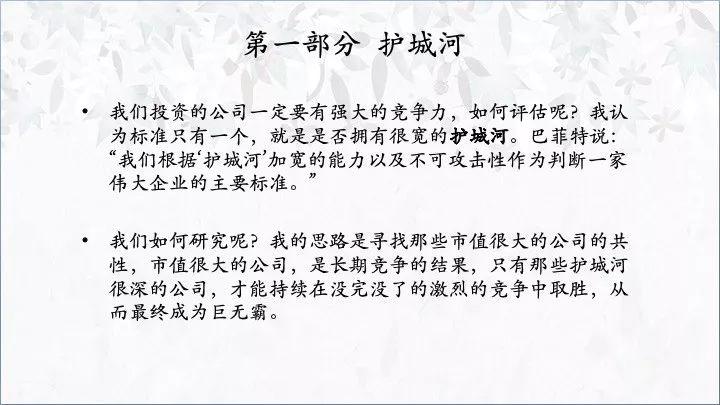 第一部分 护城河
• 我们投资的公司一定要有强大的竞争力，如何评估呢？我认
为标准只有一个，就是是否拥有很宽的护城河。巴菲特说：
“我们根据‘护城河’加宽的能力以及不可攻击性作为判断一家
伟大企业的主要标准。”
• 我们如何研究呢？我的思路是寻找那些市值很大的公司的共
性，市值很大的公司，是长期竞争的结果，只有那些护城河
很深的公司，才能持续在没完没了的激烈的竞争中取胜，从
而最终成为巨无霸。